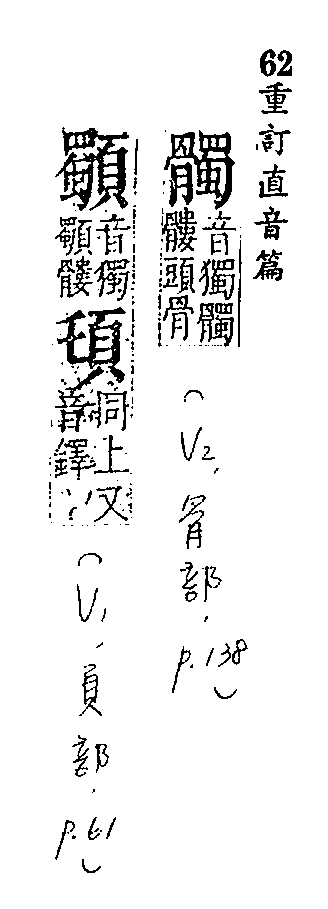 62重訂直音篇
髑
音獨髑
髏頭骨
(V2, 骨部, p.138)
音獨
髏
同上又
音鐸
(V1, 頁部, p.61)